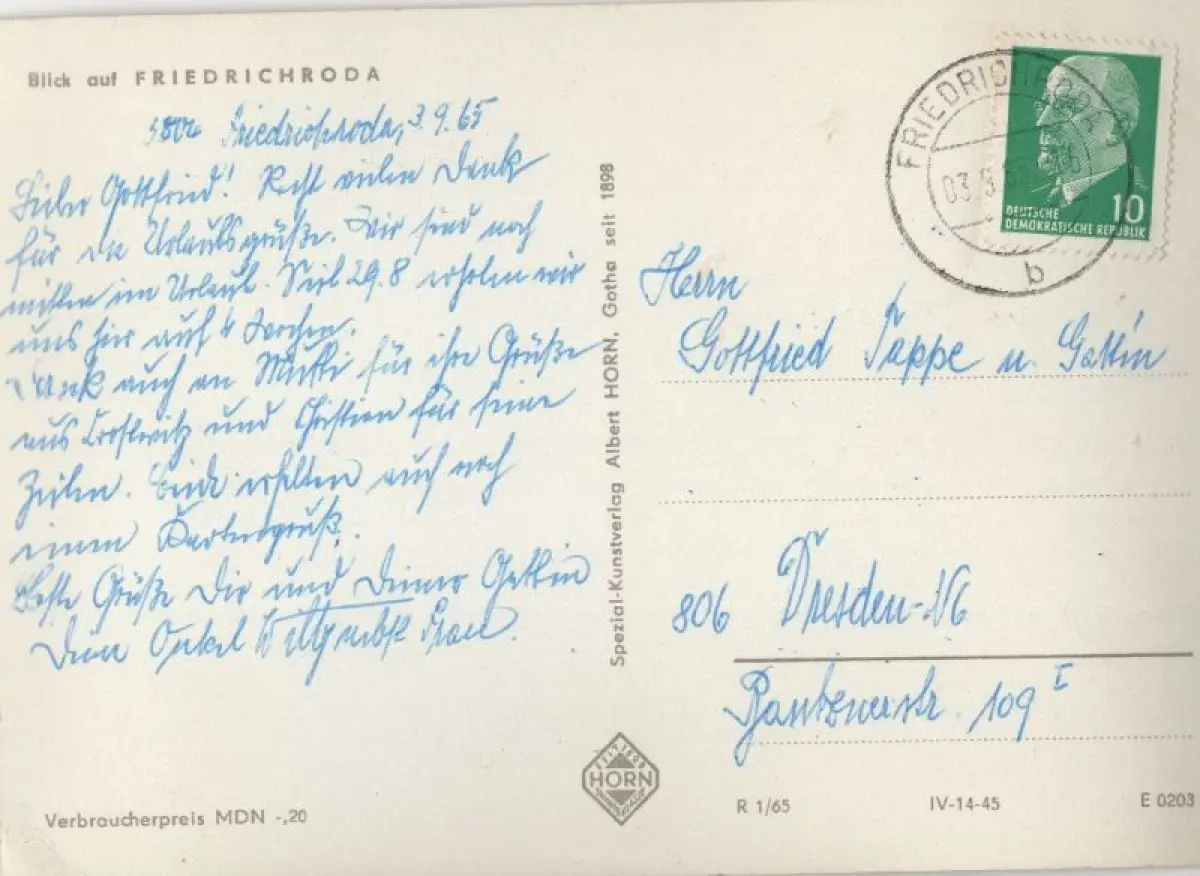 Blick auf FRIEDRICHRODA
Friedrichroda, 3.9.65
Lieber Gottfried! Recht vielen Dank
für die Urlaubsgrüße. Wir sind noch
mitten im Urlaub. Seit 29.8 erholen wir
uns hier auf 4 Wochen.
Dank auch an Mutti für ihre Grüße
aus und Christian für seine
Zeilen. Beide erhalten auch noch
einen Kartengruß.
Beste Grüße Dir und Deiner Gattin
Dein Onkel Willy nebst Frau.
Spezial-Kunstverlag Albert HORN, Gotha seit 1898
FRIEDRICHRODA
b
10
DEUTSCHE
DEMOKRATISCHE REPUBLIK
Herrn
Gottfried Pappe u. Gattin
806 Dresden-N6
Bautznerstr. 109 I
SEIT 1898
HORN
Verbraucherpreis MDN -,20
R 1/65
IV-14-45
E 0203